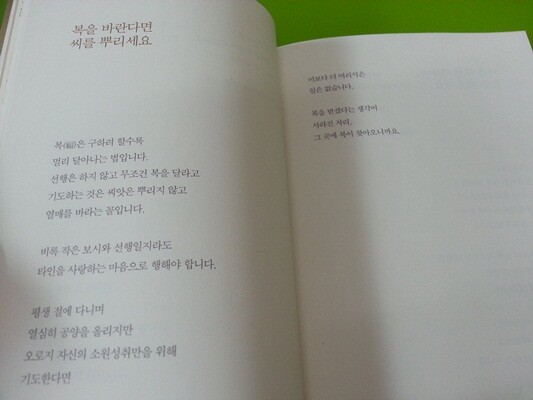 복을 바란다면
씨를 뿌리세요
복(福)은 구하려 할수록
멀리 달아나는 법입니다.
선행은 하지 않고 무조건 복을 달라고
기도하는 것은 씨앗은 뿌리지 않고
열매를 바라는 꼴입니다.
비록 작은 보시와 선행일지라도
타인을 사랑하는 마음으로 행해야 합니다.
평생 절에 다니며
열심히 공양을 올리지만
오로지 자신의 소원성취만을 위해
기도한다면
이보다 더 어리석은
일은 없습니다.
복을 받겠다는 생각이
사라진 자리,
그 곳에 복이 찾아오니까요.